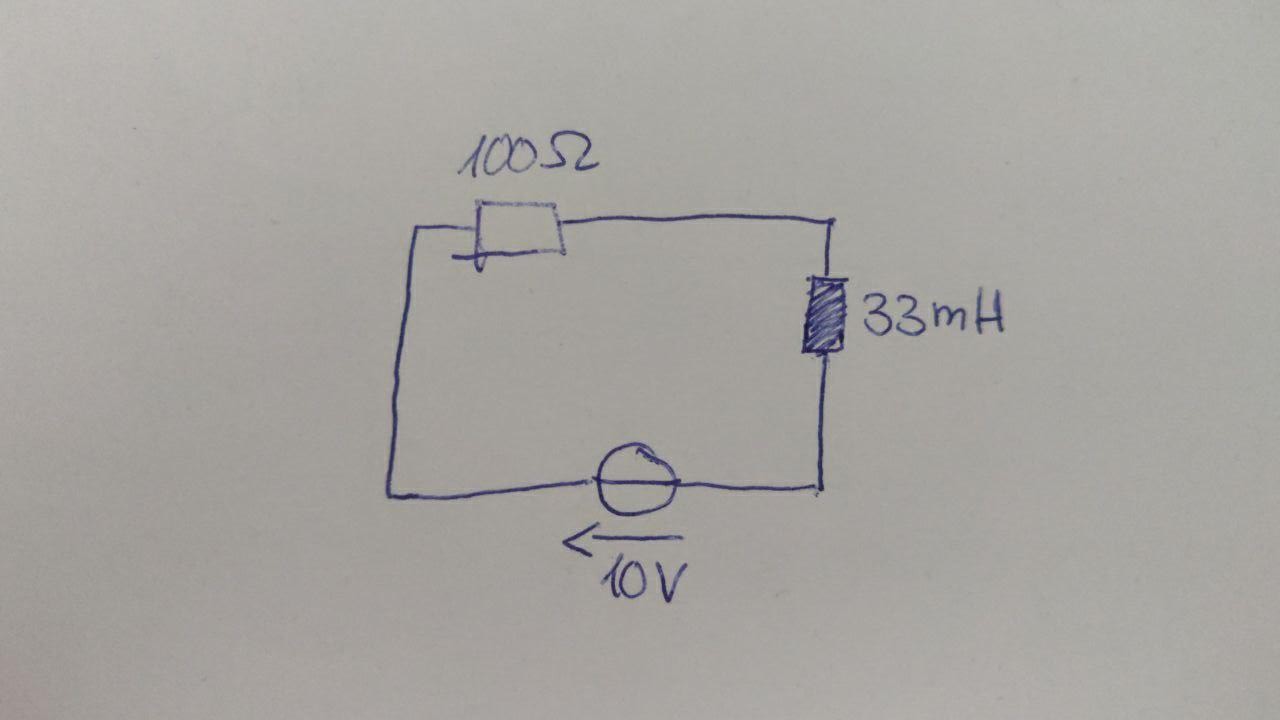 100Ω
33mH
10V